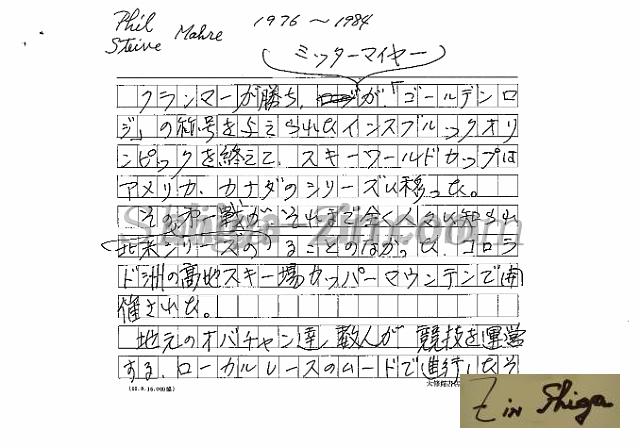 Phil
Steive Mahre 1976 〜 1984
ミッターマイヤー
クランマーが勝ち、が、「ゴールデンロ
ジ」の称号を与えられたインスブルックオリ
ンピックを終えて、スキーワールドカップは
アメリカ、カナダのシリーズに移った。
その第一戦が、それまで全く人々に知られ
北米シリーズの
ることのなかった、コロラ
ド洲の高地スキー場カッパーマウンテンで開
催された。
地元のオバチャン達、数人が競技を運営
する、ローカルレースのムードで進行したそ
Shiga-Zin.com
Z in Shiga